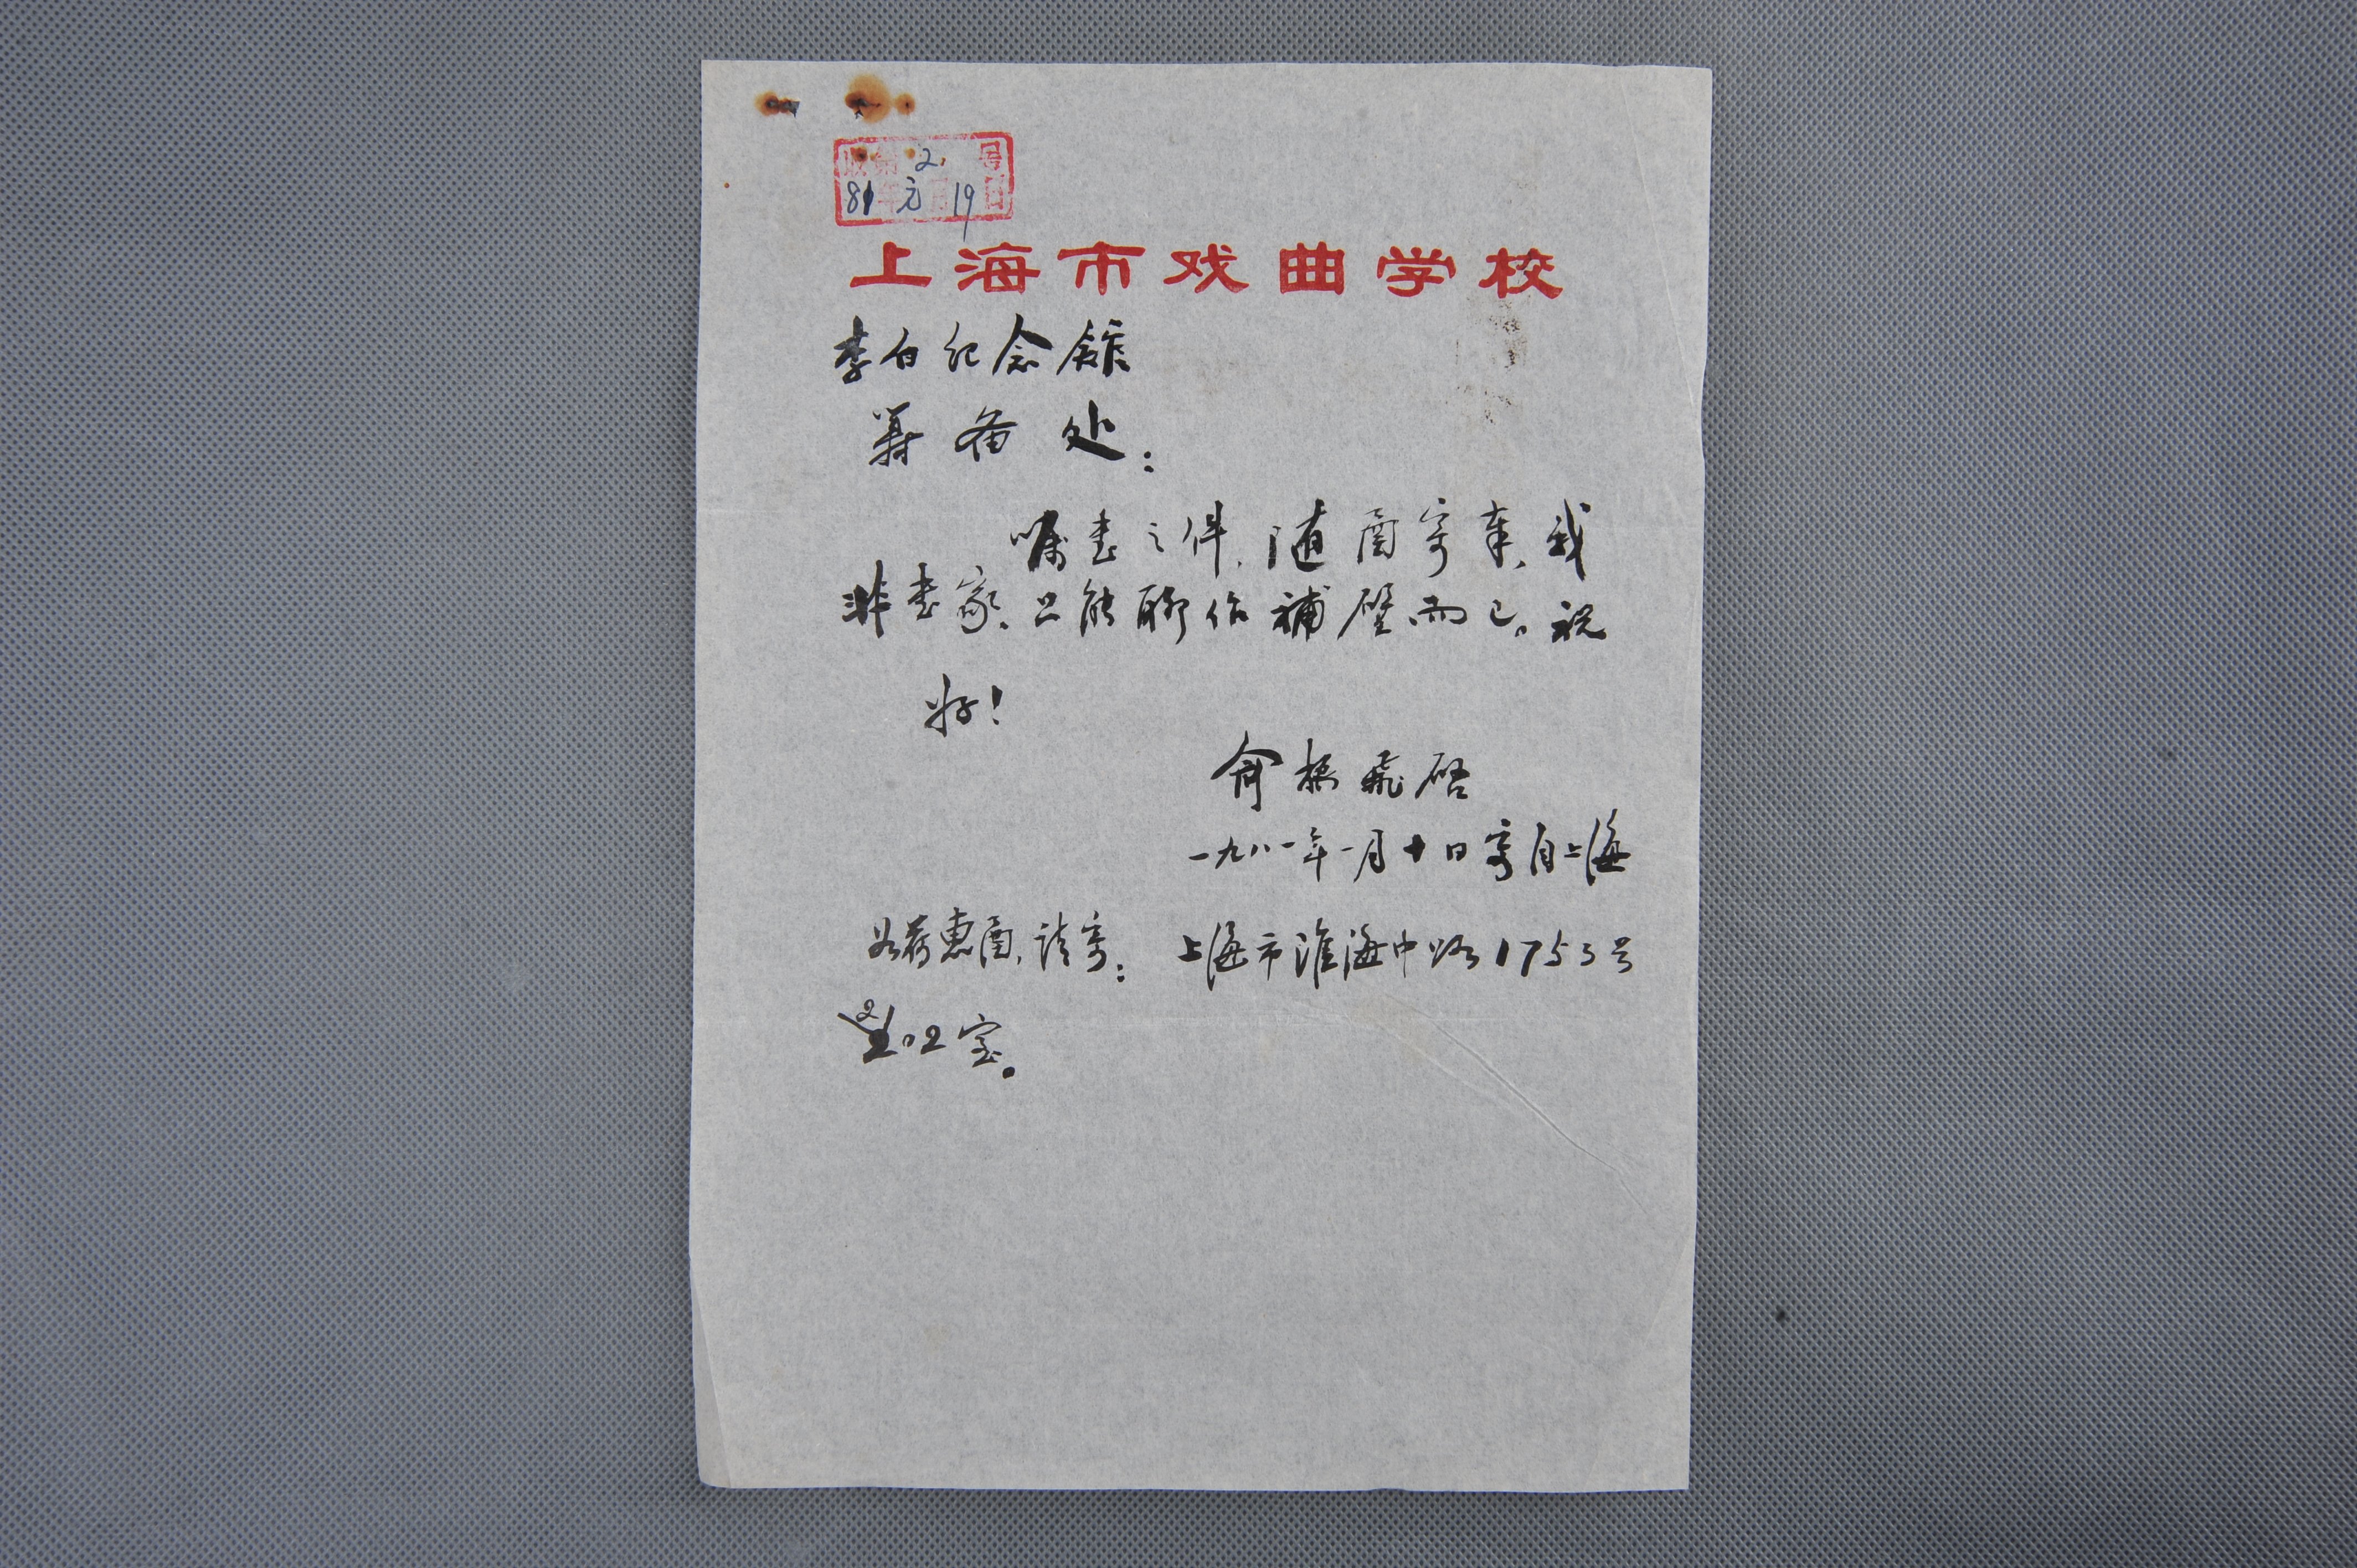 收第2号
81年元月19日
上海市戏曲学校
李白纪念館
筹备处:
嘱书之件,随函寄奉,我
非书家,只能聊作補壁而已。祝
好!
俞振飛启
一九八一年一月十日寄自上海
如荷惠函,请寄: 上海市淮海中路1753号
202室。